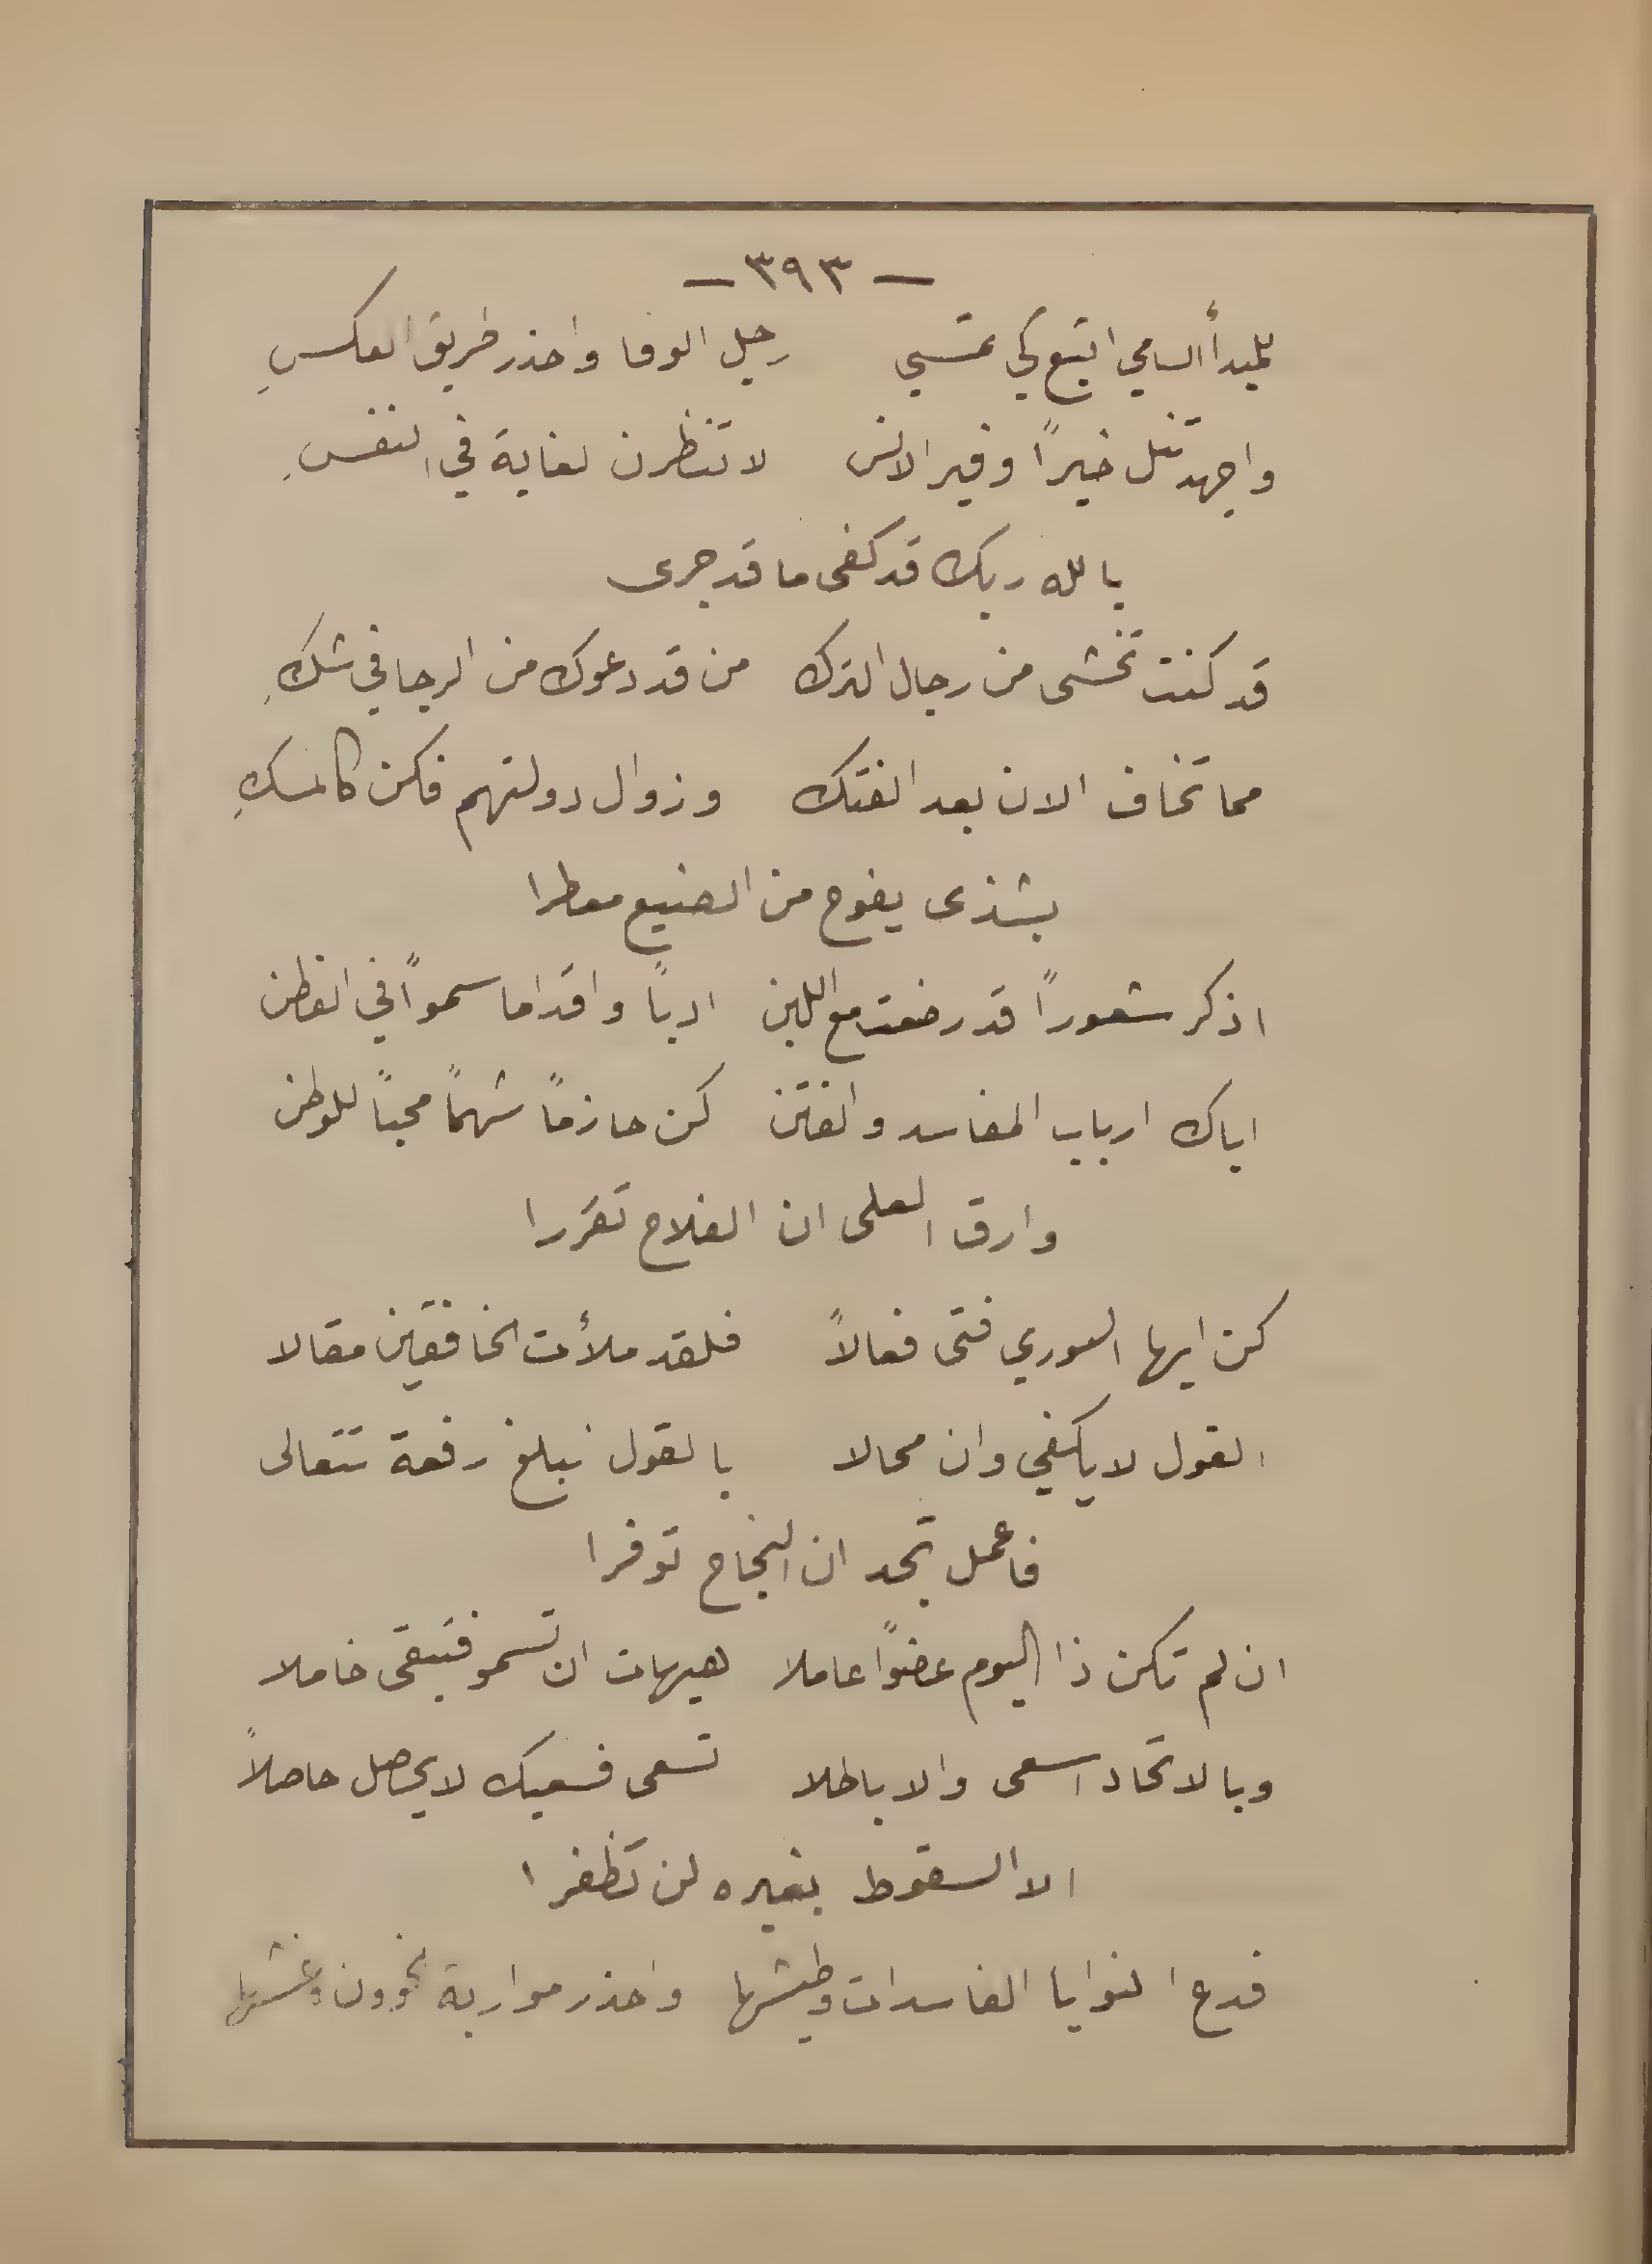 — ٣٩٣ —
للمبدأ السامي اتبع كي تمسي رجل الوفا واحذر طريق العكسِ
واجهد تنل خيراً وفير الانس لا تنظرن لغاية في النفسِ
بالله ربك قد كفى ما قد جرى
قد كنت تخشى من رجال الترك من قد دعوك من الرجا في شكِ
مما تخاف الان بعد الفتك وزوال دولتهم فكن كالمسكِ
بشذى يفوح من الصنيع معطرا
اذكر شعوراً قد رضعت مع اللبن ادباً واقداما سمواً في الفطن
اياك ارباب المفاسد والفتن كن حازماً شهماً محباً للوطن
وارق العلى ان الفلاح تقررا
كن ايها السوري فتى فعالاً فلقد ملأت الخافقين مقالا
القول لا يكفي وان محالا بالقول نبلغ رفعة تتعالى
فاعمل تجد ان النجاح توفرا
ان لم تكن ذا اليوم عضواً عاملا هيهات ان تسمو فتبقى خاملا
وبالاتحاد اسعى والا باطلا تسعى فسعيك لا يحصل حاصلاً
الا السقوط بغيره لن تظفرا
فدع النوايا الفاسدات وطيشها واحذر مواربة الخوون وغشها